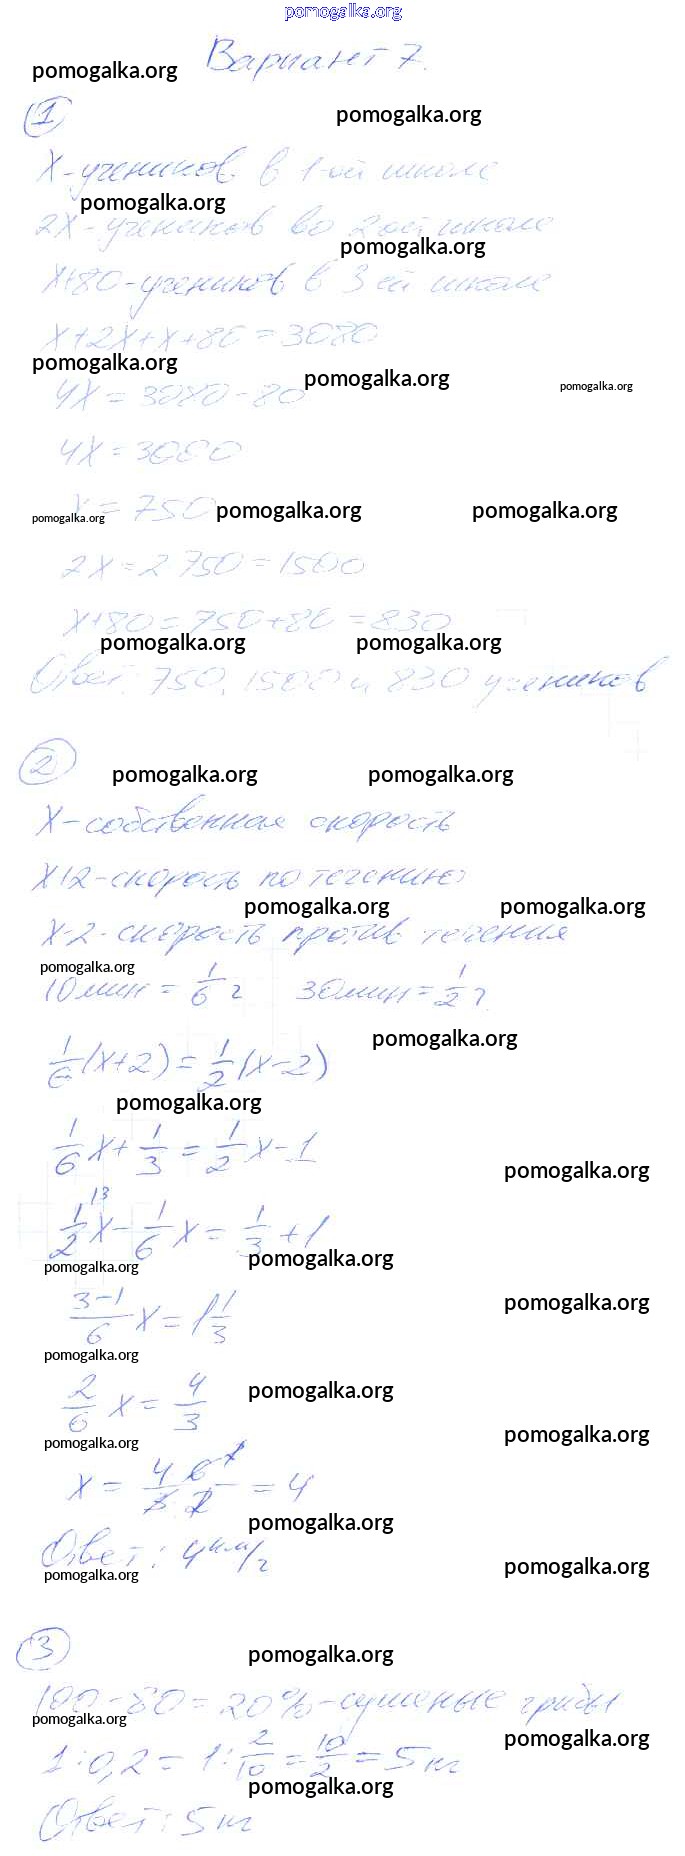 pomogalka.org
Вариант 7.
pomogalka.org
1
pomogalka.org
X - учеников в 1-ой школе
pomogalka.org
2X - учеников во 2 ой школе
pomogalka.org
X+80 - учеников в 3 ей школе
X+2X+X+80 = 3080
pomogalka.org
pomogalka.org
pomogalka.org
4X = 3080 - 80
4X = 3000
X = 750
pomogalka.org
pomogalka.org
pomogalka.org
2X = 2 750 = 1500
X+80 = 750+80 = 830
pomogalka.org
pomogalka.org
Ответ: 750, 1500 и 830 учеников
2
pomogalka.org
pomogalka.org
X - собственная скорость
X+2 - скорость по течению
pomogalka.org
pomogalka.org
X-2 - скорость против течения
pomogalka.org
10 мин = 1/6 ч 30 мин = 1/2 ч
pomogalka.org
1/6 (X+2) = 1/2 (X-2)
pomogalka.org
1/6 X + 1/3 = 1/2 X - 1
pomogalka.org
1/2 X - 1/6 X = 1/3 + 1
pomogalka.org
pomogalka.org
3-1/6 X = 1 1/3
pomogalka.org
pomogalka.org
2/6 X = 4/3
pomogalka.org
pomogalka.org
pomogalka.org
X = 4 6/3 2 = 4
pomogalka.org
Ответ: 4 км/ч
pomogalka.org
pomogalka.org
3
pomogalka.org
100 - 80 = 20% - сушеные грибы
pomogalka.org
pomogalka.org
1 : 0,2 = 1 : 2/10 = 10/2 = 5 кг
pomogalka.org
Ответ: 5 кг